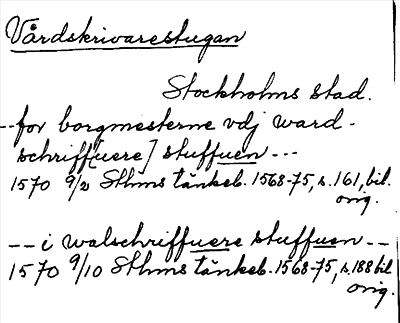 Vårdskrivarestugan
Stockholms stad.
--for borgmesterne vdj ward-
schriff[uere] stuffuen ---
1570 9/2 Sthms tänkeb. 1568-75, s. 161, bil.
orig.
-- i walschriffuere stuffuen --
1570 9/10 Sthms tänkeb. 1568-75, s. 188 bil
orig.